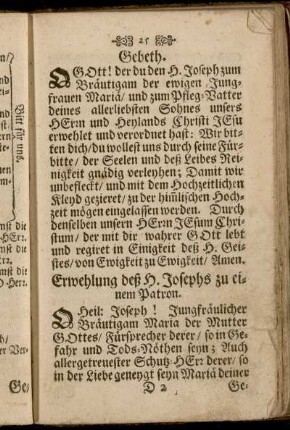 25
Gebeth.
O GOtt! der du den H. Joseph zum
Bräutigam der ewigen Jung-
frauen Mariä/ und zum Pfleg-Vatter
deines allerliebsten Sohnes unsers
HErrn und Heylands Christi JEsu
erwehlet und verordnet hast: Wir bit-
ten dich/ du wollest uns durch seine Für-
bitte/ der Seelen und deß Leibes Rei-
nigkeit gnädig verleyhen; Damit wir
unbefleckt/ und mit dem Hochzeitlichen
Kleyd gezieret/ zu der him̃lischen Hoch-
zeit mögen eingelassen werden. Durch
denselben unsern HErrn JEsum Chri-
stum/ der mit dir wahrer GOtt lebt
und regiret in Einigkeit deß H. Gei-
stes/ von Ewigkeit zu Ewigkeit/ Amen.
Erwehlung deß H. Josephs zu ei-
nem Patron.
O Heil: Joseph! Jungfräulicher
Bräutigam Maria der Mutter
GOttes/ Fürsprecher derer/ so in Ge-
fahr und Tods-Nöthen seyn; Auch
allergetreuester Schutz-HErr derer/ so
in der Liebe geneygt seyn Mariä deiner
D 2
Ge-
Bitt für uns.